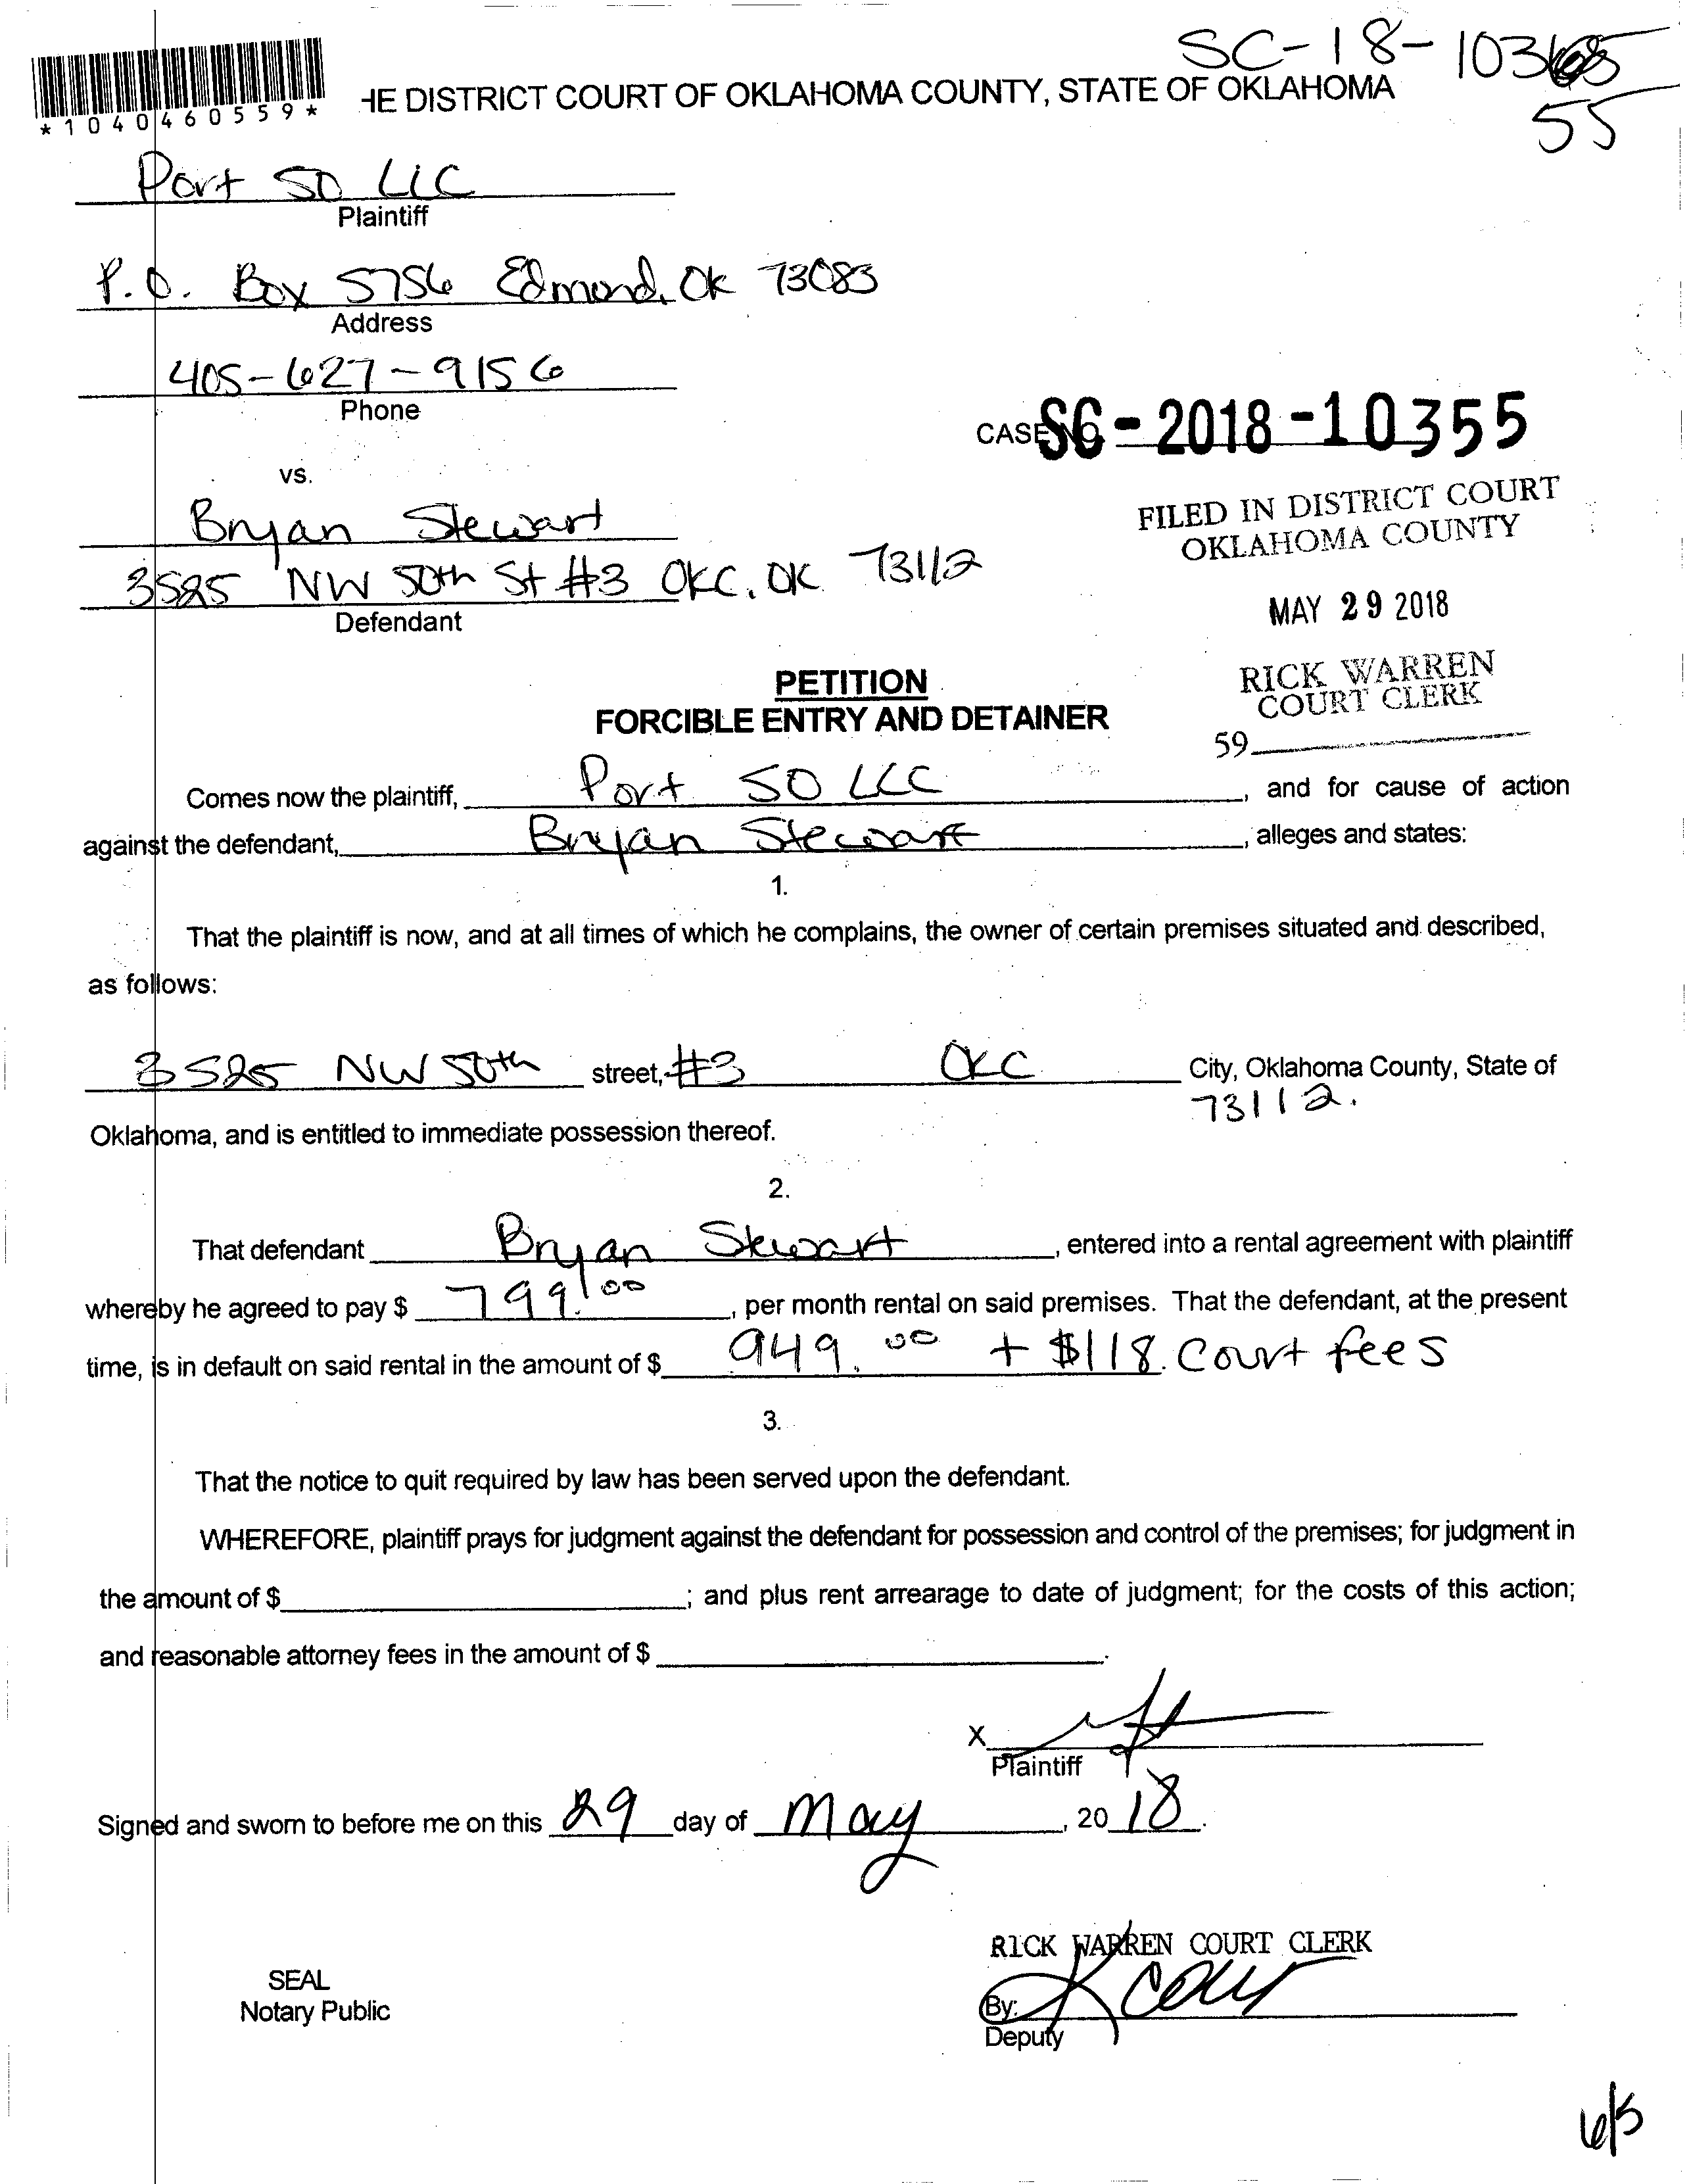 SC-18-103
55
*1040460559*
HE DISTRICT COURT OF OKLAHOMA COUNTY, STATE OF OKLAHOMA
Port 50 LLC
Plaintiff
P.O. Box 5756 Edmond, Ok 73083
Address
405-627-9156
Phone
CASE SC-2018-10355
vs.
FILED IN DISTRICT COURT
OKLAHOMA COUNTY
Bryan Stewart
3525 NW 50th St #3 OKC, OK 73112
Defendant
MAY 29 2018
RICK WARREN
COURT CLERK
59
PETITION
FORCIBLE ENTRY AND DETAINER
Comes now the plaintiff, Port 50 LLC, and for cause of action
against the defendant, Bryan Stewart, alleges and states:
1.
That the plaintiff is now, and at all times of which he complains, the owner of certain premises situated and described,
as follows:
3525 NW 50th street, #3 OKC City, Oklahoma County, State of
73112.
Oklahoma, and is entitled to immediate possession thereof.
2.
That defendant Bryan Stewart, entered into a rental agreement with plaintiff
whereby he agreed to pay $ 799.00, per month rental on said premises. That the defendant, at the present
time, is in default on said rental in the amount of $ 949.00 + $118. Court fees
3.
That the notice to quit required by law has been served upon the defendant.
WHEREFORE, plaintiff prays for judgment against the defendant for possession and control of the premises; for judgment in
the amount of $ ; and plus rent arrearage to date of judgment; for the costs of this action;
and reasonable attorney fees in the amount of $ .
X
Plaintiff
Signed and sworn to before me on this 29 day of May, 2018.
RICK WARREN COURT CLERK
SEAL
Notary Public
By:
Deputy
6/5